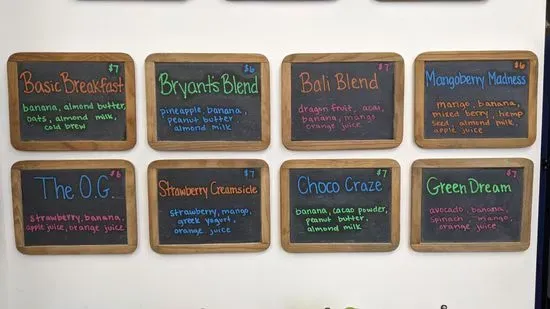 $7
Basic Breakfast
banana, almond butter,
oats, almond milk,
cold brew
$6
Bryant's Blend
pineapple, banana,
peanut butter
almond milk
$7
Bali Blend
dragon fruit, acai,
banana, mango
orange juice
$6
Mangoberry Madness
mango, banana,
mixed berry, hemp
seed, almond milk,
apple juice
$6
The O.G.
strawberry, banana,
apple juice, orange juice
$7
Strawberry Creamsicle
strawberry, mango,
greek yogurt,
orange juice
$7
Choco Craze
banana, cacao powder,
peanut butter,
almond milk
$7
Green Dream
avocado, banana,
spinach, mango,
orange juice